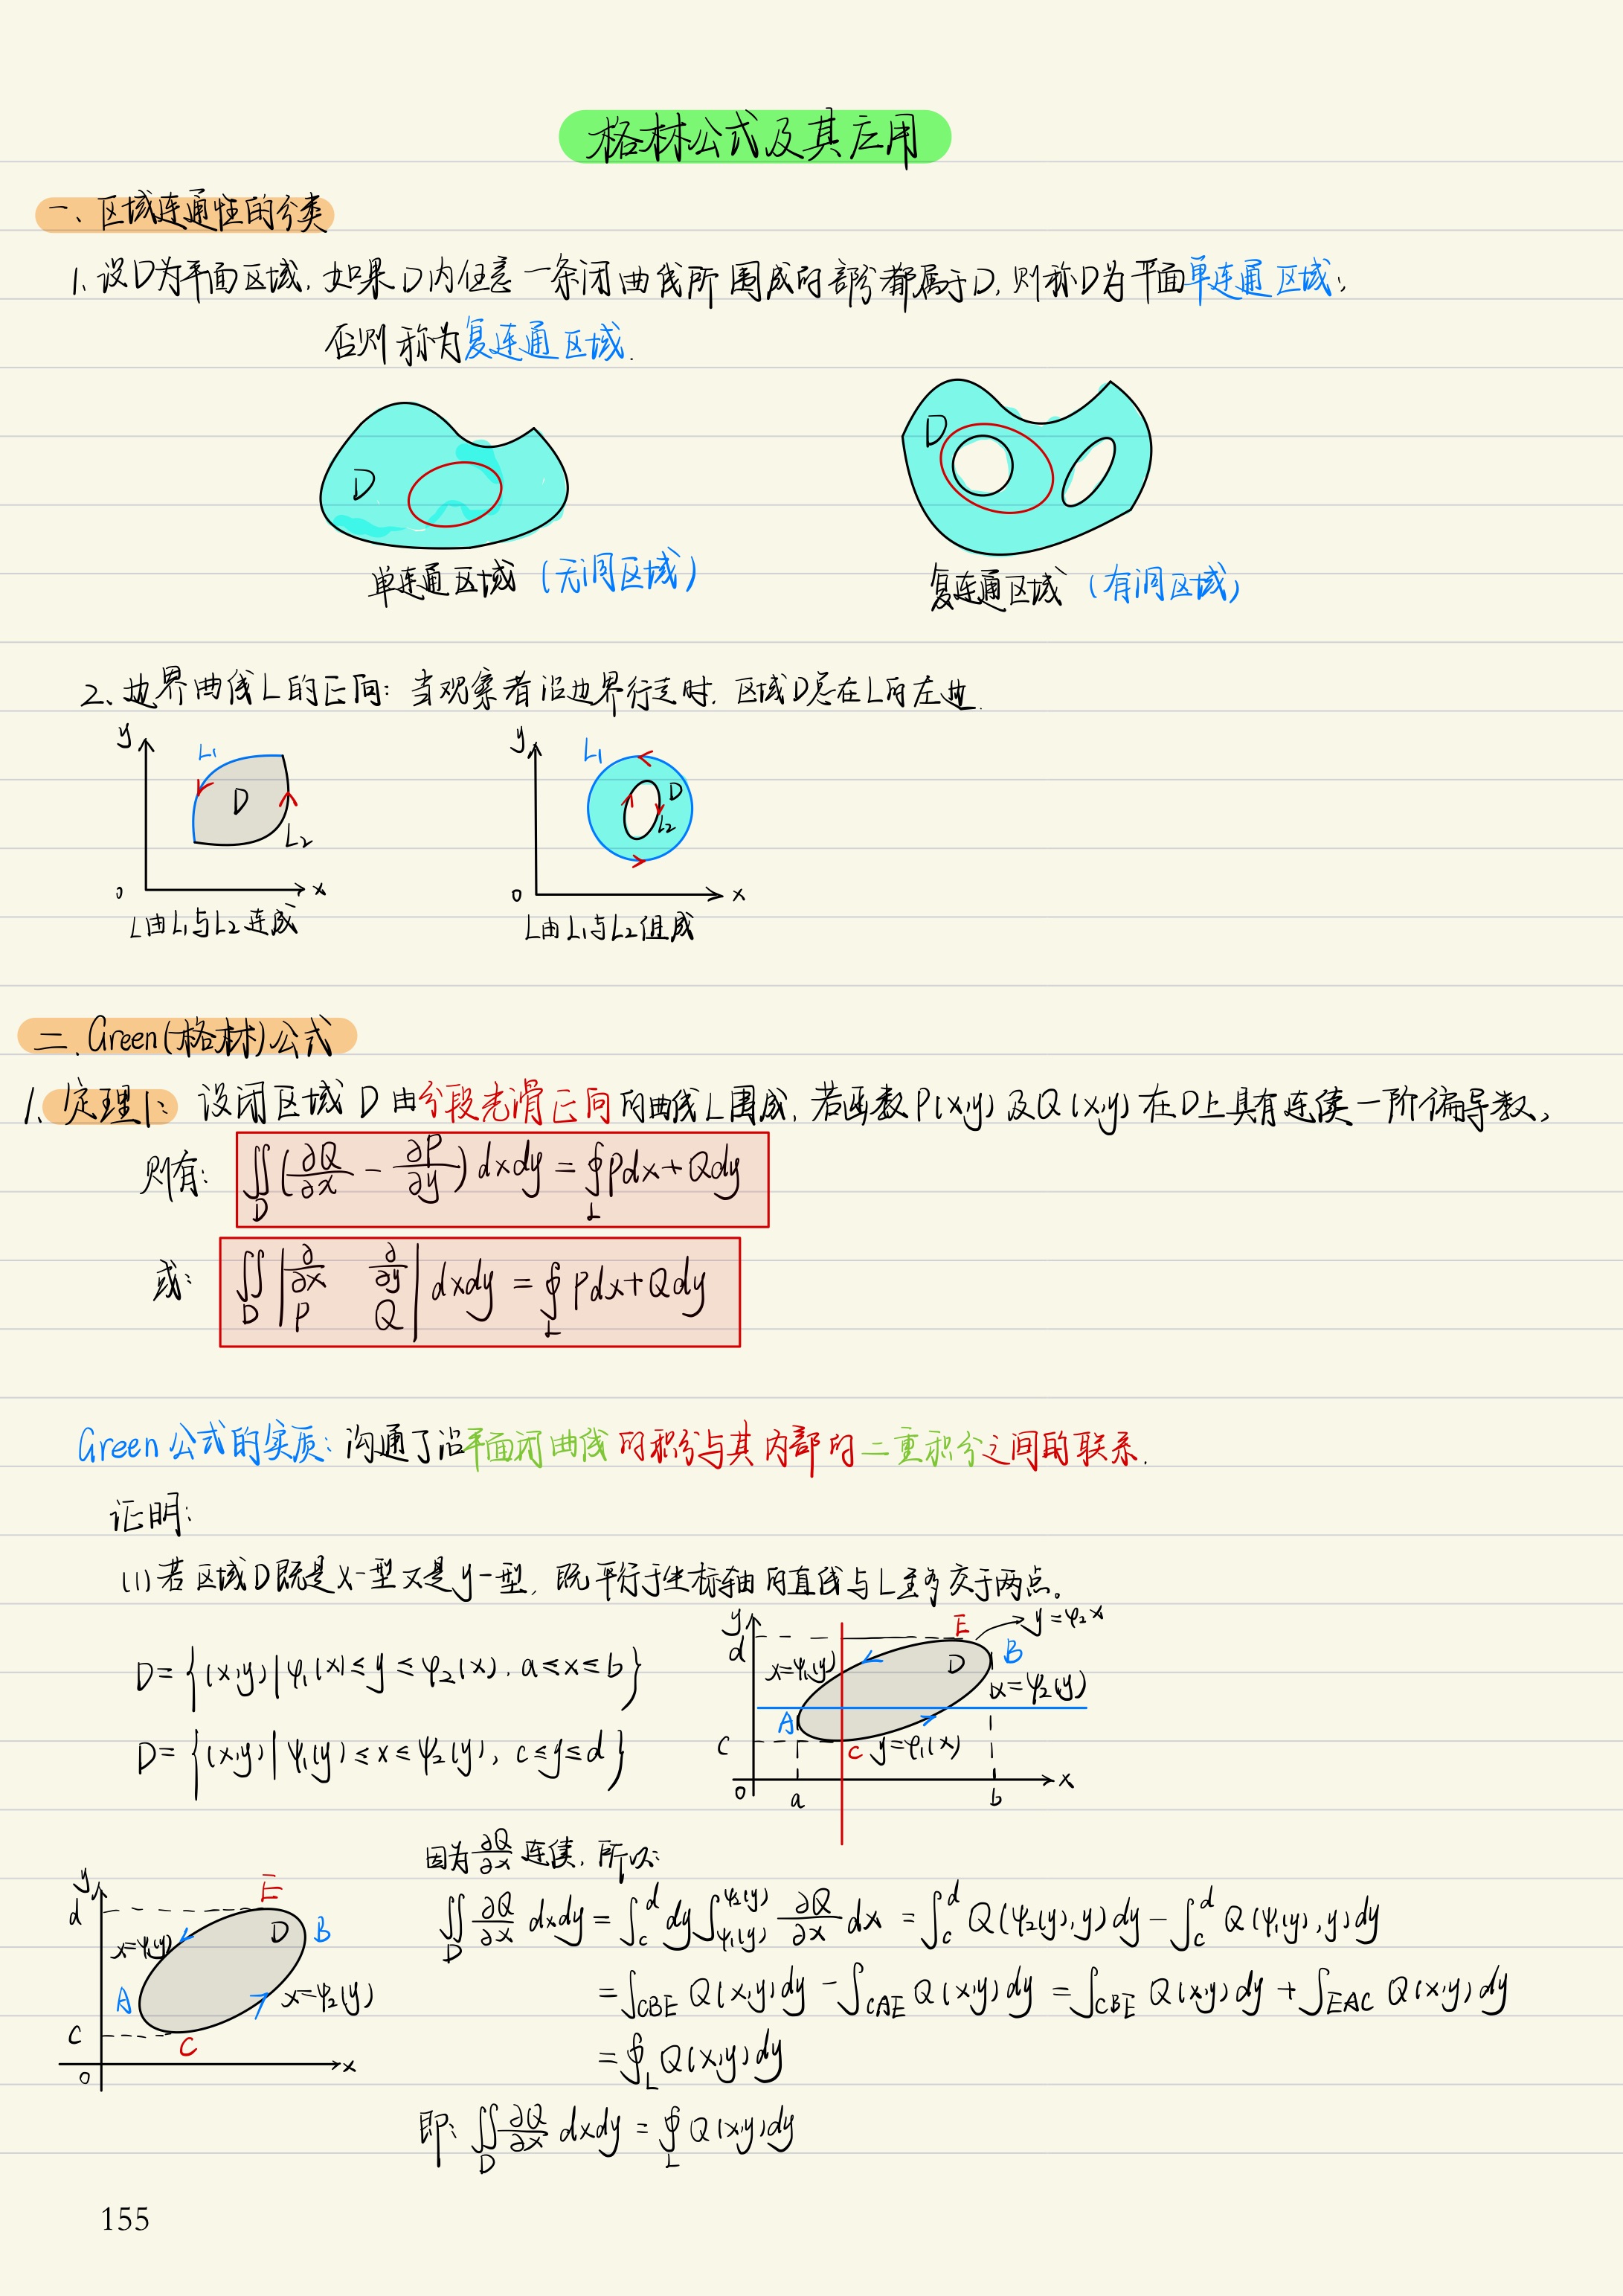 格林公式及其应用
一、区域连通性的分类
1、设D为平面区域,如果D内任意一条闭曲线所围成的部分都属于D,则称D为平面单连通区域;
否则称为复连通区域.
D
D
单连通区域(无洞区域)
复连通区域(有洞区域)
2、边界曲线L的正向:当观察者沿边界行走时,区域D总在L的左边.
y L₁ D L₂ 0 x
y L₁ D L₂ 0 x
L由L₁与L₂连成
L由L₁与L₂组成
二、Green(格林)公式
1、定理1: 设闭区域D由分段光滑正向的曲线L围成,若函数P(x,y)及Q(x,y)在D上具有连续一阶偏导数,
则有: ∬_D (∂Q/∂x − ∂P/∂y) dxdy = ∮_L Pdx+Qdy
或: ∬_D |∂/∂x ∂/∂y; P Q| dxdy = ∮_L Pdx+Qdy
Green公式的实质:沟通了沿平面闭曲线的积分与其内部的二重积分之间的联系.
证明:
(1)若区域D既是x-型又是y-型,既平行于坐标轴的直线与L至多交于两点。
D={(x,y)|φ₁(x)≤y≤φ₂(x), a≤x≤b}
D={(x,y)|ψ₁(y)≤x≤ψ₂(y), c≤y≤d}
y d E y=φ₂x
x=ψ₁(y) D B
x=ψ₂(y)
A
c C y=φ₁(x)
0 a b x
因为∂Q/∂x连续,所以:
y d E
x=ψ₁(y) D B
A x=ψ₂(y)
c C
0 x
∬_D ∂Q/∂x dxdy = ∫_c^d dy ∫_{ψ₁(y)}^{ψ₂(y)} ∂Q/∂x dx = ∫_c^d Q(ψ₂(y),y)dy − ∫_c^d Q(ψ₁(y),y)dy
= ∫_CBE Q(x,y)dy − ∫_CAE Q(x,y)dy = ∫_CBE Q(x,y)dy + ∫_EAC Q(x,y)dy
= ∮_L Q(x,y)dy
即: ∬_D ∂Q/∂x dxdy = ∮_L Q(x,y)dy
155